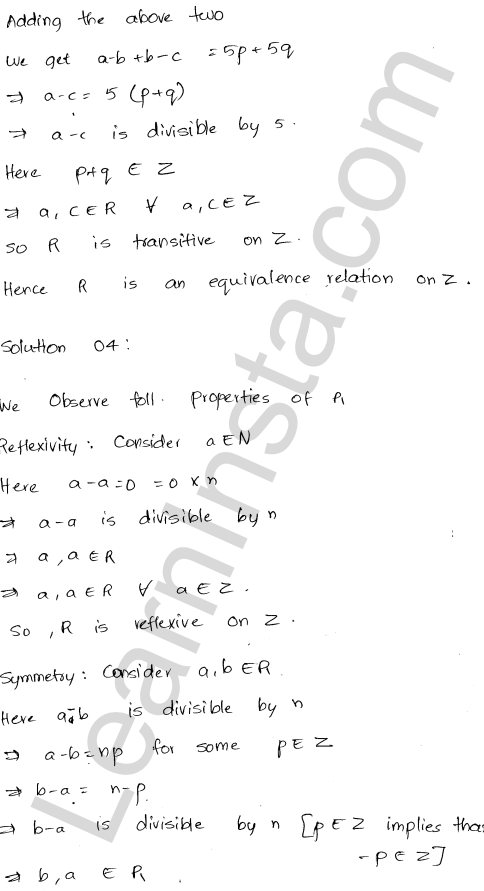 Adding the above two
we get a-b+b-c = 5p+5q
⇒ a-c = 5 (p+q)
⇒ a-c is divisible by 5.
Here p+q ∈ Z
⇒ a, c ∈ R ∀ a, c ∈ Z
so R is transitive on Z.
Hence R is an equivalence relation on Z.
Solution 04:
We Observe foll. Properties of R
Reflexivity: Consider a ∈ N
Here a-a=0 = 0 × n
⇒ a-a is divisible by n
⇒ a, a ∈ R
⇒ a, a ∈ R ∀ a ∈ Z.
So, R is reflexive on Z.
Symmetry: Consider a, b ∈ R
Here a-b is divisible by n
⇒ a-b=np for some p ∈ Z
⇒ b-a = n-p.
⇒ b-a is divisible by n [p ∈ Z implies that
-p ∈ Z]
⇒ b, a ∈ R.
LearnInsta.com